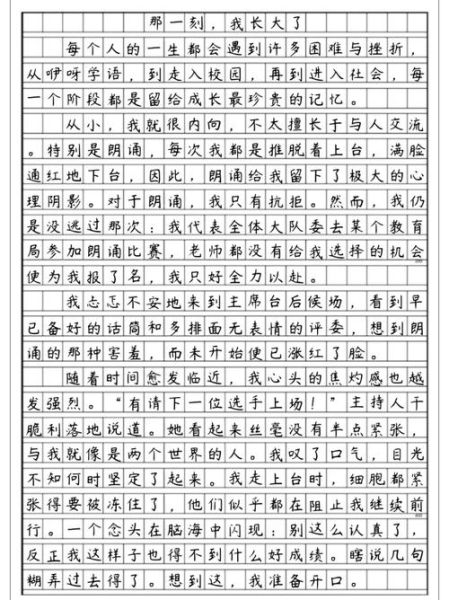 那一刻，我长大了
每个人的一生都会遇到许多困难与挫折，
从咿呀学语，到走入校园，再到进入社会，每
一个阶段都是留给成长最珍贵的记忆。
从小，我就很内向，不太擅长于与人交流
。特别是朗诵，每次我都是推脱着上台，满脸
通红地下台，因此，朗诵给我留下了极大的心
理阴影。对于朗诵，我只有抗拒。然而，我仍
是没逃过那次：我代表全体大队委去某个教育
局参加朗诵比赛，老师都没有给我选择的机会
便为我报了名，我只好全力以赴。
我忐忑不安地来到主席台后候场，看到早
已备好的话筒和多排面无表情的评委，想到朗
诵的那种害羞，而未开始便已涨红了脸。
随着时间愈发临近，我心头的焦灼感也越
发强烈。“有请下一位选手上场！”主持人干
脆利落地说道。她看起来丝毫没有半点紧张，
与我就像是两个世界的人。我叹了口气，目光
不知何时坚定了起来。我走上台时，细胞都紧
张得要被冻住了，他们似乎都在阻止我继续前
行。一个念头在脑海中闪现：别这么认真了，
反正我这样子也得不到什么好成绩。瞎说几句
糊弄过去得了。想到这，我准备开口。